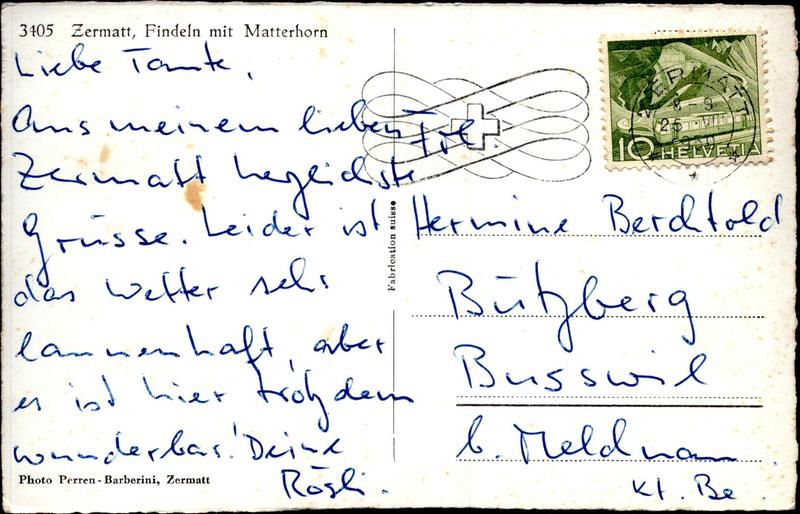 3405 Zermatt, Findeln mit Matterhorn
Liebe Tante,
Aus meinem lieben
Zermatt herzlichste
Grüsse. Leider ist
das Wetter sehr
launenhaft, aber
es ist hier trotzdem
wunderbar! Deine
Rösli.
Photo Perren-Barberini, Zermatt
Fabrication suisse
ZERMATT
10 HELVETIA
Frl.
Hermine Berchtold
Bützberg
Busswil
b. Meldnau
Kt. Be.